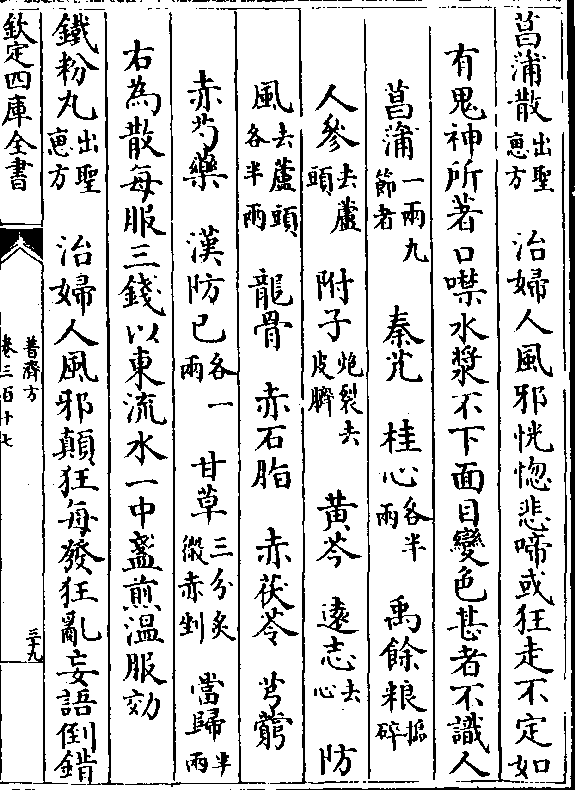 菖蒲散出聖惠方　治婦人風邪恍惚悲啼或狂走不定如
有鬼神所著口噤水漿不下面目變色甚者不識人
菖蒲一兩九節者　秦艽　桂心各半兩　禹餘粮搗碎
人參去蘆頭　附子炮裂去皮臍　黃芩　遠志去心　防
風去蘆頭各半兩　龍骨　赤石脂　赤茯苓　芎藭
赤芍藥　漢防已各一兩　甘草三分炙微赤剉　當歸半兩
右為散每服三錢以東流水一中盞煎温服効
鐵粉丸出聖惠方　治婦人風邪顛狂每發狂亂妄語倒錯
欽定四庫全書
普濟方
卷三百十七
三十九